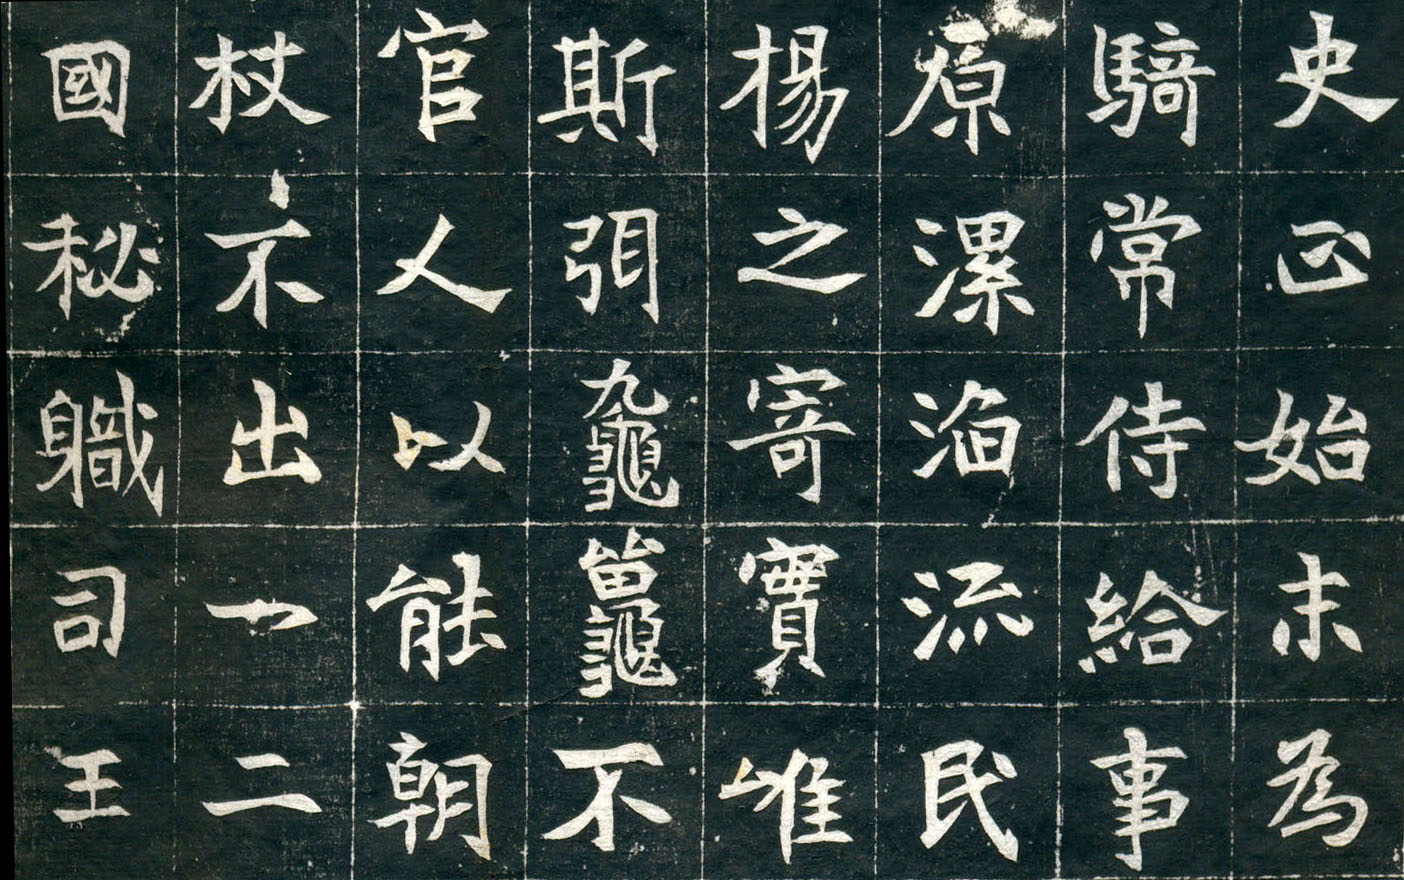 史正始末為
騎常侍給事
原漯淊流民
楊之寄實唯
斯不
官人以能朝
杖不出一二
國秘職司王